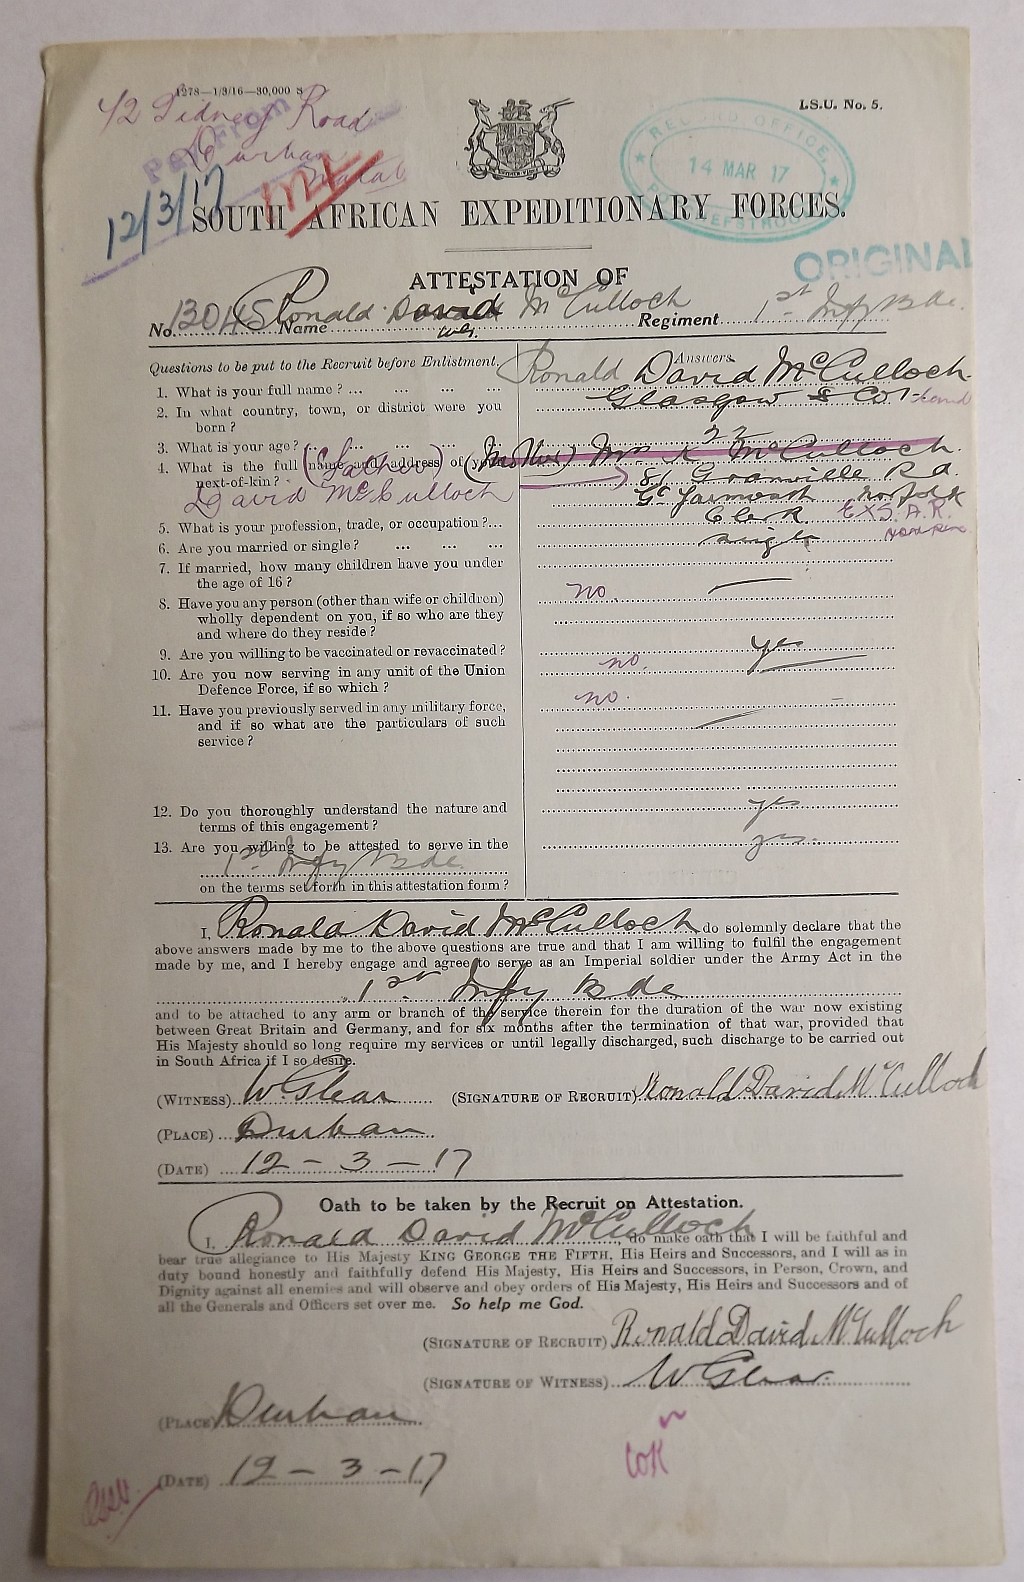 1278—1/3/16—30,000 S
I.S.U. No. 5.
42 Sidney Road
Durban
Natal
Pay From
12/3/17
RECORD OFFICE,
14 MAR 17
POTCHEFSTROOM
SOUTH AFRICAN EXPEDITIONARY FORCES.
ORIGINAL
ATTESTATION OF
No. 13045 Name Ronald David McCulloch Regiment 1st Infy Bde.
Questions to be put to the Recruit before Enlistment. Answers
1. What is your full name? ... ... ... ... Ronald David McCulloch
2. In what country, town, or district were you born? Glasgow Scotland
3. What is your age? ... ... ... ... 22
4. What is the full name and address of your next-of-kin? (Mother) Mrs K McCulloch
(Father) David McCulloch
81 Granville Rd
Gt Yarmouth Norfolk
5. What is your profession, trade, or occupation?... Clerk EX S.A.R.
6. Are you married or single? ... ... ... single
7. If married, how many children have you under
the age of 16? —
8. Have you any person (other than wife or children) no.
wholly dependent on you, if so who are they
and where do they reside?
9. Are you willing to be vaccinated or revaccinated? yes
10. Are you now serving in any unit of the Union no.
Defence Force, if so which?
11. Have you previously served in any military force, no. —
and if so what are the particulars of such
service?
12. Do you thoroughly understand the nature and
terms of this engagement? yes
13. Are you willing to be attested to serve in the yes
1st Infy Bde
on the terms set forth in this attestation form?
I, Ronald David McCulloch do solemnly declare that the
above answers made by me to the above questions are true and that I am willing to fulfil the engagement
made by me, and I hereby engage and agree to serve as an Imperial soldier under the Army Act in the
1st Infy Bde
and to be attached to any arm or branch of the service therein for the duration of the war now existing
between Great Britain and Germany, and for six months after the termination of that war, provided that
His Majesty should so long require my services or until legally discharged, such discharge to be carried out
in South Africa if I so desire.
(WITNESS) (SIGNATURE OF RECRUIT) Ronald David McCulloch
(PLACE) Durban
(DATE) 12 – 3 – 17
Oath to be taken by the Recruit on Attestation.
I, Ronald David McCulloch do make oath that I will be faithful and
bear true allegiance to His Majesty KING GEORGE THE FIFTH, His Heirs and Successors, and I will as in
duty bound honestly and faithfully defend His Majesty, His Heirs and Successors, in Person, Crown, and
Dignity against all enemies and will observe and obey orders of His Majesty, His Heirs and Successors and of
all the Generals and Officers set over me. So help me God.
(SIGNATURE OF RECRUIT) Ronald David McCulloch
(SIGNATURE OF WITNESS)
(PLACE) Durban
(DATE) 12 – 3 – 17